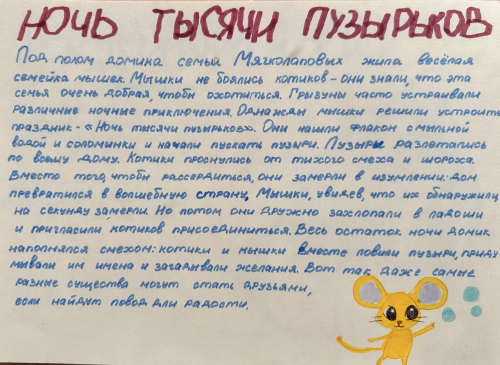 НОЧЬ ТЫСЯЧИ ПУЗЫРЬКОВ
Под полом домика семьи Мягколаповых жила весёлая
семейка мышек. Мышки не боялись котиков – они знали, что эта
семья очень добрая, чтобы охотиться. Грызуны часто устраивали
различные ночные приключения. Однажды мышки решили устроить
праздник – «Ночь тысячи пузырьков». Они нашли флакон с мыльной
водой и соломинки и начали пускать пузыри. Пузыри разлетались
по всему дому. Котики проснулись от тихого смеха и шороха.
Вместо того, чтобы рассердиться, они замерли в изумлении: дом
превратился в волшебную страну. Мышки, увидев, что их обнаружили,
на секунду замерли. Но потом они дружно захлопали в ладоши
и пригласили котиков присоединиться. Весь остаток ночи домик
наполнялся смехом: котики и мышки вместе ловили пузыри, приду
мывали им имена и загадывали желания. Вот так даже самые
разные существа могут стать друзьями,
если найдут повод для радости.